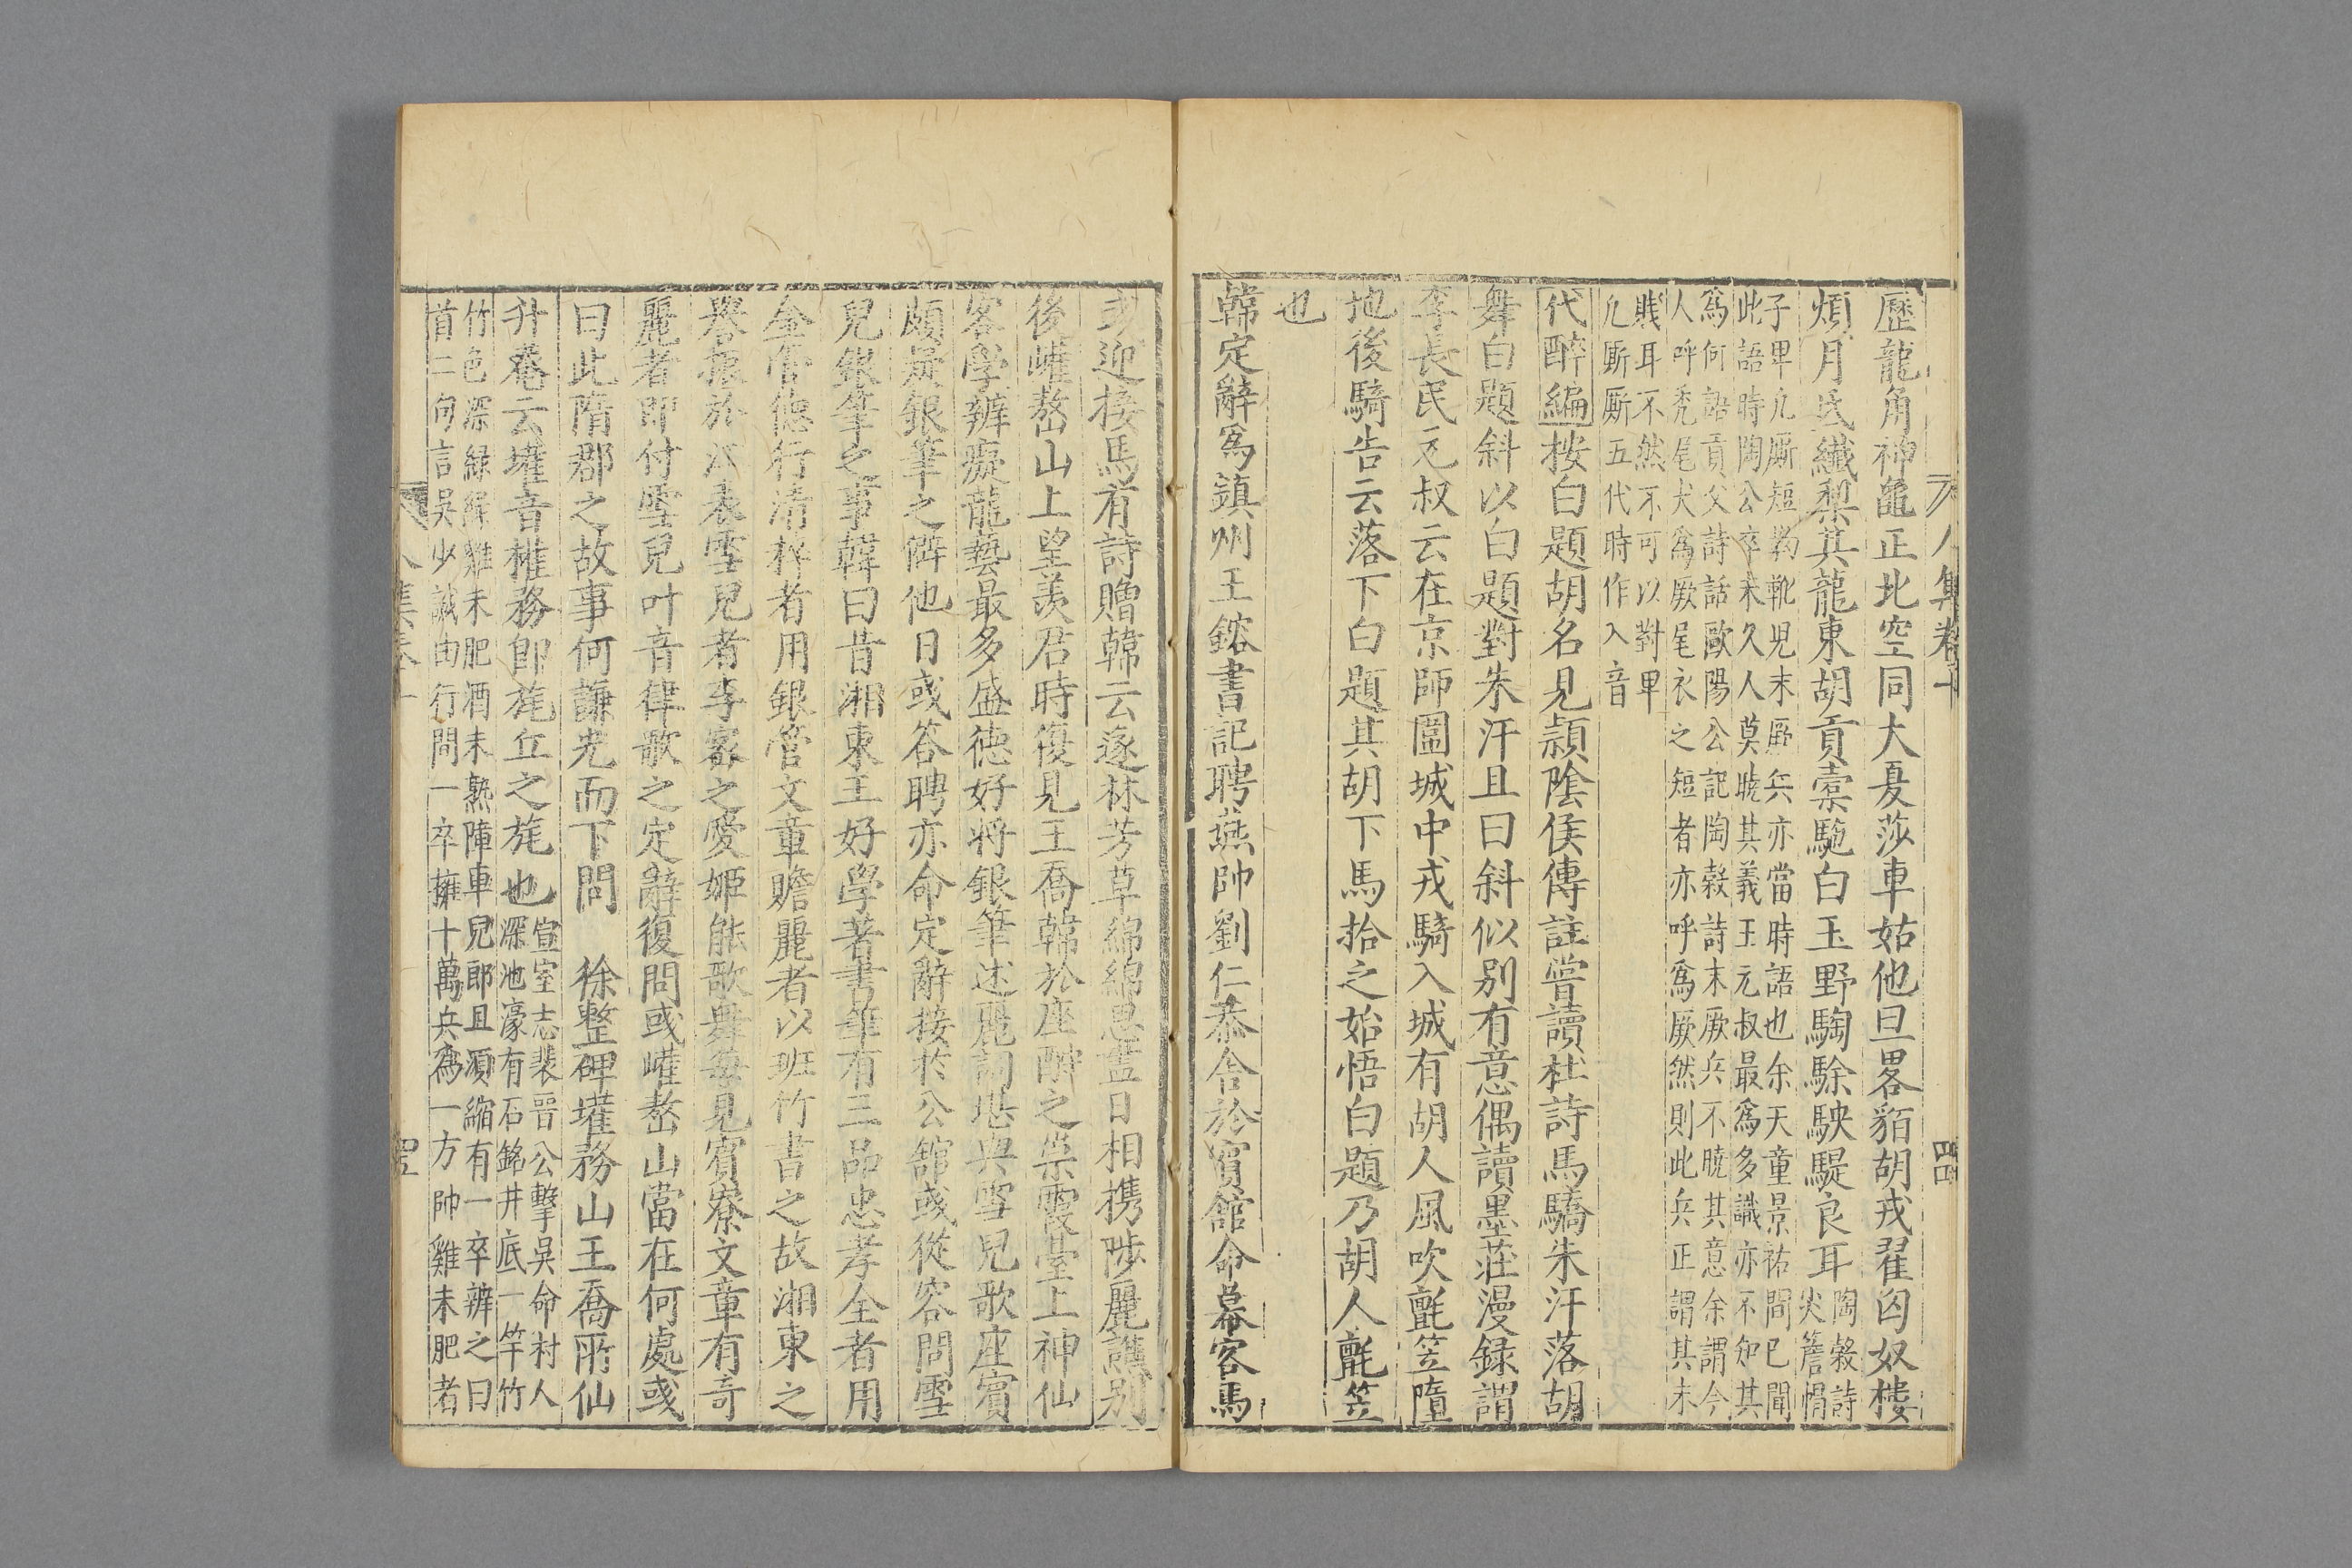 八集卷十
四四
歷龍角神龜正北空同大夏莎車姑他旦畧貊胡戎翟匈奴樓
煩月氏纖犁其龍東胡貢橐駞白玉野騊駼駃騠良耳
陶榖詩
尖簷帽
子卑凡厮短靿靴兒末厥兵亦當時語也余天童景祐間已聞
此語時陶公卒未久人莫曉其義王元叔最爲多識亦不知其
爲何語貢父詩話歐陽公記陶榖詩末厥兵不曉其意余謂今
人呼秃尾犬爲厥尾衣之短者亦呼爲厥然則此兵正謂其末
賤耳不然不可以對卑
凡厮厮五代時作入音
代醉編按白題胡名見潁陰侯傳註嘗讀杜詩馬驕朱汗落胡
舞白題斜以白題對朱汗且曰斜似别有意偶讀墨莊漫録謂
李長民元叔云在京師圍城中戎騎入城有胡人風吹氈笠墮
地後騎告云落下白題其胡下馬拾之始悟白題乃胡人氈笠
也
韓定辭爲鎮州王鎔書記聘燕帥劉仁恭舍於賓館命幕客馬
彧迎接馬有詩贈韓云邃林芳草綿綿思盡日相携陟麗譙别
後巏嶅山上望羨君時復見王喬韓於座酬之崇霞臺上神仙
客學辨癡龍藝最多盛德好將銀筆述麗詞堪與雪兒歌座賓
頗疑銀筆之僻他日彧答聘亦命定辭接於公舘彧從容問雪
兒銀筆之事韓曰昔湘東王好學著書筆有三品忠孝全者用
金管德行清粹者用銀管文章贍麗者以班竹書之故湘東之
譽振於江表雪兒者李密之愛姬能歌舞每見賓寮文章有奇
麗者即付雪兒叶音律歌之定辭復問彧巏嶅山當在何處彧
曰此隋郡之故事何謙光而下問　徐整碑壦務山王喬所仙
升菴云壦音權務即旄丘之旄也
宣室志裴晋公擊吳命村人
深池濠有石銘井底一竿竹
竹色深緑緑雞未肥酒未熟障車兒郎且須縮有一卒辨之曰
首二句言吳少誠由行間一卒擁十萬兵爲一方帥雞未肥者
八集卷十
四五